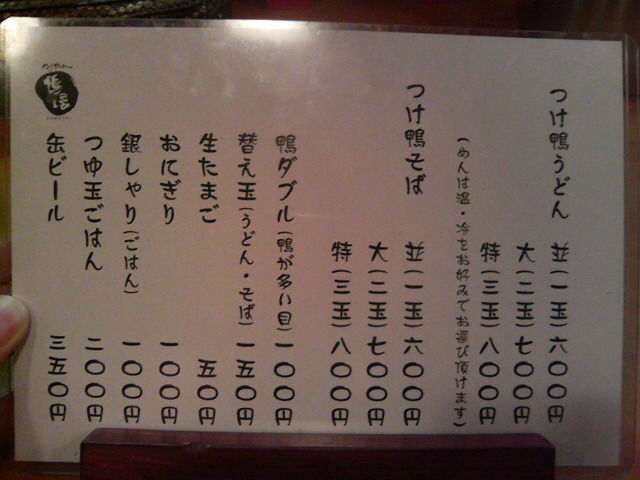 つけ鴨うどん
並(一玉)六〇〇円
大(二玉)七〇〇円
特(三玉)八〇〇円
(めんは温・冷をお好みでお選び頂けます)
つけ鴨そば
並(一玉)六〇〇円
大(二玉)七〇〇円
特(三玉)八〇〇円
鴨ダブル(鴨が多い目)一〇〇円
替え玉(うどん・そば)一五〇円
生たまご 五〇円
おにぎり 一〇〇円
銀しゃり(ごはん) 一〇〇円
つゆ玉ごはん 二〇〇円
缶ビール 三五〇円